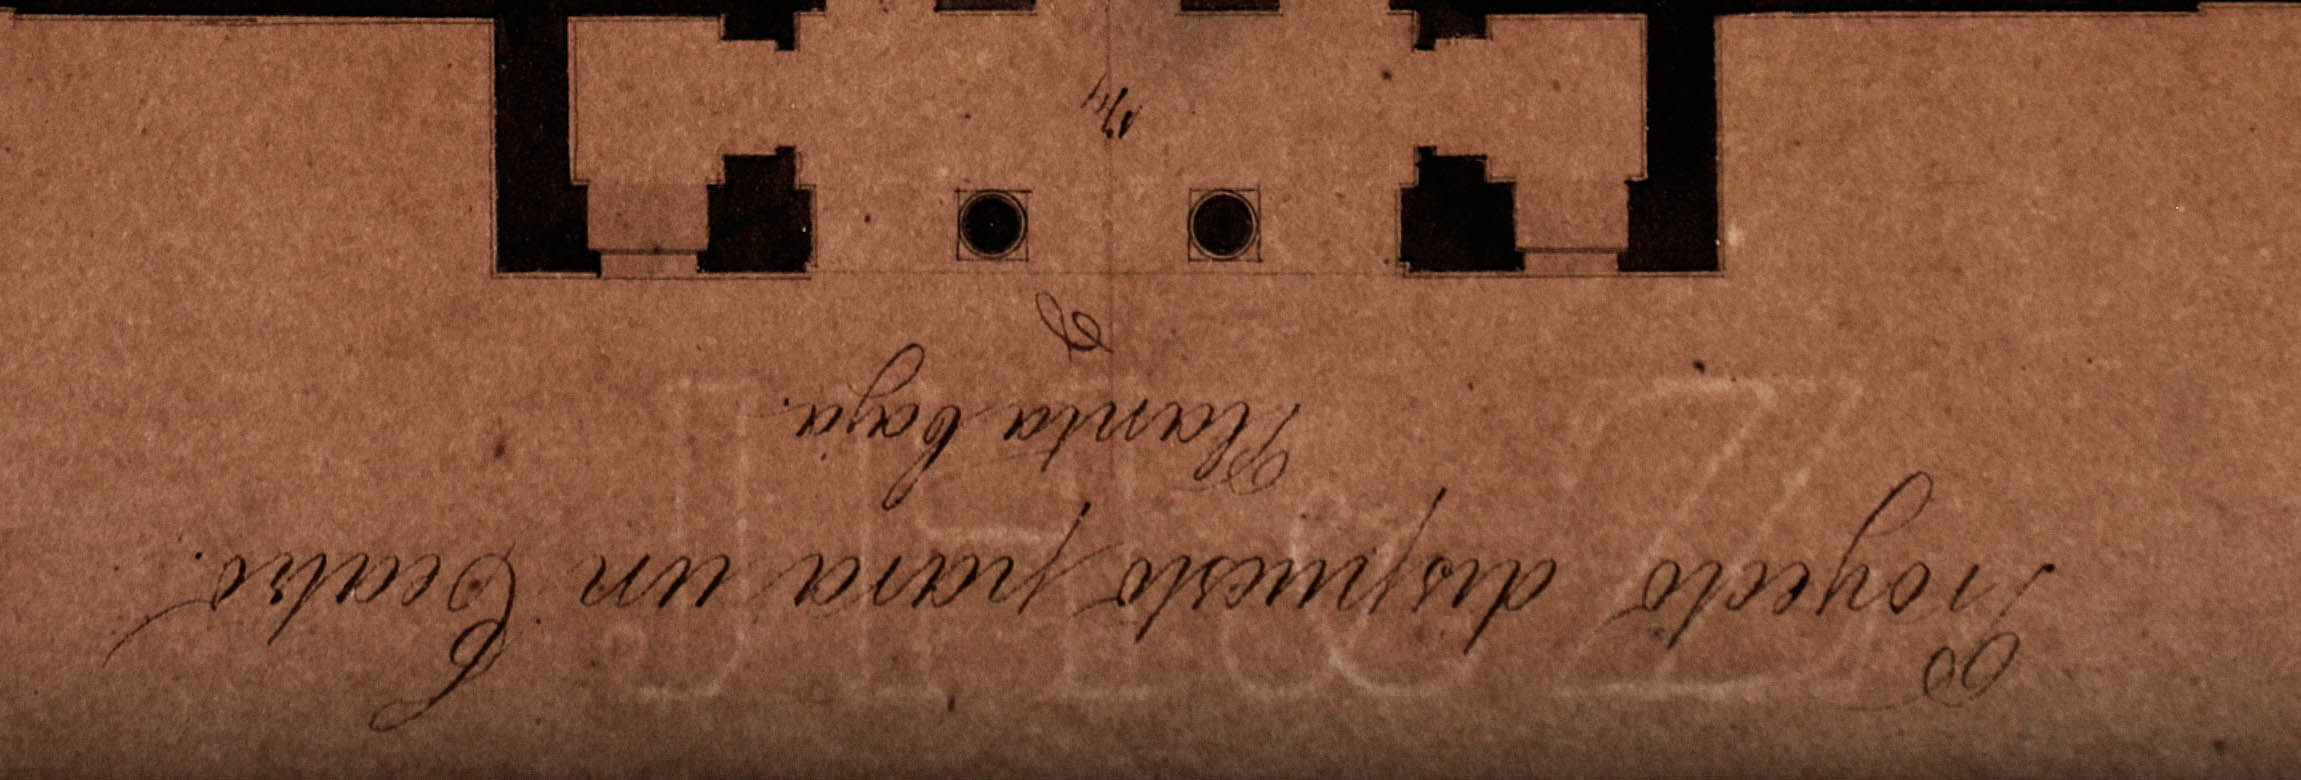 Proyecto dispuesto para un Teatro.
Planta baja.
JH&Z